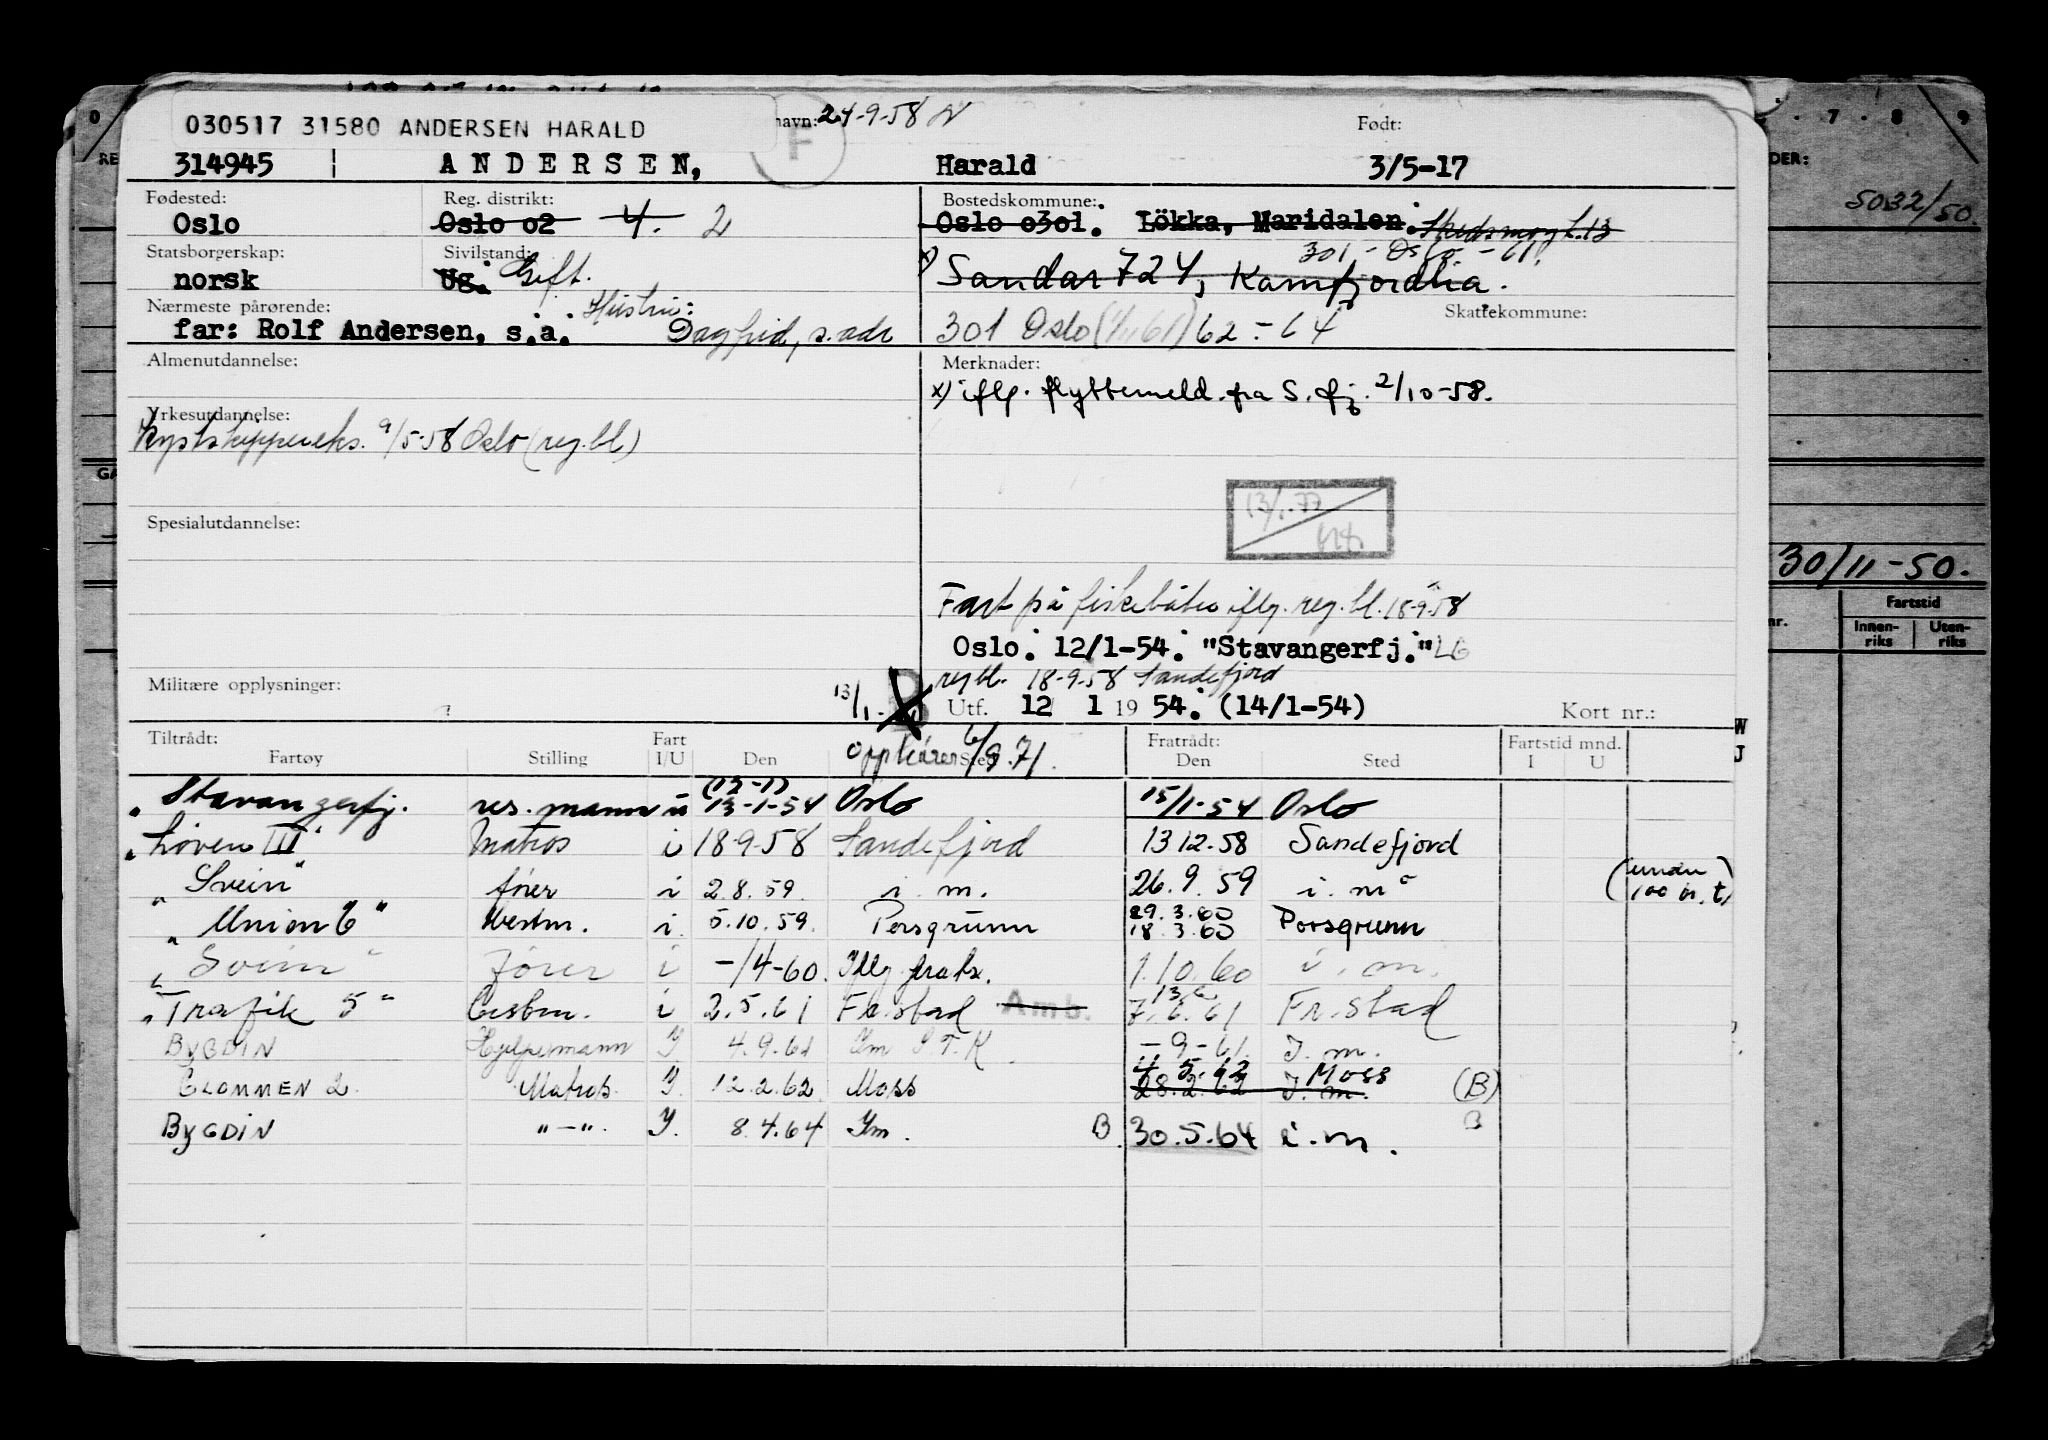 030517 31580 ANDERSEN HARALD
24-9-58
Født:
314945 ANDERSEN, Harald 3/5-17
Fødested: Reg. distrikt: Bostedskommune:
Oslo Oslo o2 4. 2 Oslo o3o1. Lökka, Maridalen.
301 - Oslo - 61.
Statsborgerskap: Sivilstand:
norsk Ug. Gift. x) Sandar 724, Kamfjordlia.
Nærmeste pårørende: Hustru: Skattekommune:
far: Rolf Andersen, s.a. Dagfrid, s. adr 301 Oslo 62 - 64
Almenutdannelse: Merknader:
x) iflg. flyttemeld. fra S. fj. 2/10-58.
Yrkesutdannelse:
Kystskippereks. 9/5-58 Oslo (reg.bl)
13/1-77
Spesialutdannelse:
Fart på fiskebåter iflg. reg. bl. 18-9-58
Oslo. 12/1-54. "Stavangerfj."
reg bl. 18-9-58 Sandefjord
Militære opplysninger: 13/1- Utf. 12 1 19 54. (14/1-54) Kort nr.:
Opphører 6/9.71.
Tiltrådt: Fart Fratrådt: Fartstid mnd.
Fartøy Stilling I/U Den Sted Den Sted I U
"Stavangerfj. res. mann u (12-1) 13-1-54 Oslo 15/1-54 Oslo
"Løven III" Matros i 18-9-58 Sandefjord 13 12.58 Sandefjord
"Svein" fører i 2.8.59. i. m. 26.9.59 i. m (under 100 br. t)
"Union 6" Bestm. i. 5.10.59. Porsgrunn 29.3.60 18.3.60 Porsgrunn
"Svein" fører i -/4-60. Iflg. fratr. 1.10.60 i. m.
"Trafik 5" Bestm. i 2.5.61 Fr.stad Amb. 13.6 7.6.61 Fr.stad
BYGDIN Hjelpemann I 4.9.61 Im S.T.K - 9 - 61. I. m.
GLOMMEN 2. Matros. I. 12.2.62 Moss 4 5.62 Moss 28.2.62 I. m. (B)
BYGDIN "-". I. 8.4.64 Im. B. 30.5.64 i. m. B
7 . 8 9
5032/50.
30/11-50.
Fartstid
Innen-riks Uten-riks